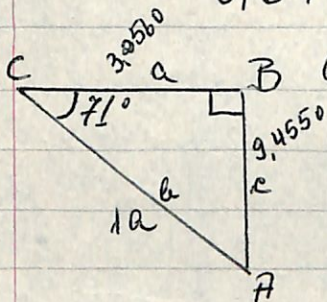 3,2560
C a B
71°
9,4550
c
b
10
A